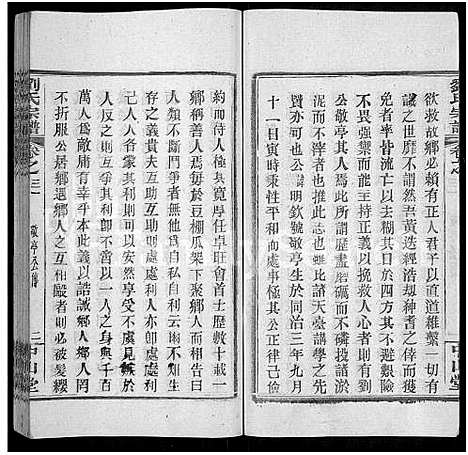 劉氏宗譜
卷之三
欲救故鄉必賴有正人君子以直道維繫一切有
形或世運之轉移不然吾黃迭經劫都耆老之僅
免者率皆流亡以圖存其日於四方其不挾勢以
不畏強禦而能主持正義以挽救人心者幾何人
公敬亭其人焉此所謂歷盡磨礪而不移投諸淤
泥而不滓者歟公明欽號敬亭派諱天臺講學之
賢九亦可也生於同治三年九月
十一日寅時秉性平和而處事極其公正律己儉
中山堂
劉氏宗譜
卷之三
敬亭公傳
二中山堂
約而待人極其寬厚任卓旺會首士歷數十載一
鄉稱善人焉嘗於豆棚瓜架下聚鄉人而告之曰
人類不鬭爭者無他自私自利云爾不知人羣生
存之義貴夫互助互助則處處利人亦卽處處利
己人人各得其利則可以安然享受不虞見嫉於
人也反是專利於一人則以一人之身與千百
萬人爲敵庸有幸乎本此義以誥誡鄉人鄉人罔
不折服公居鄉遇鄉人之互相毆者則必被髮纓